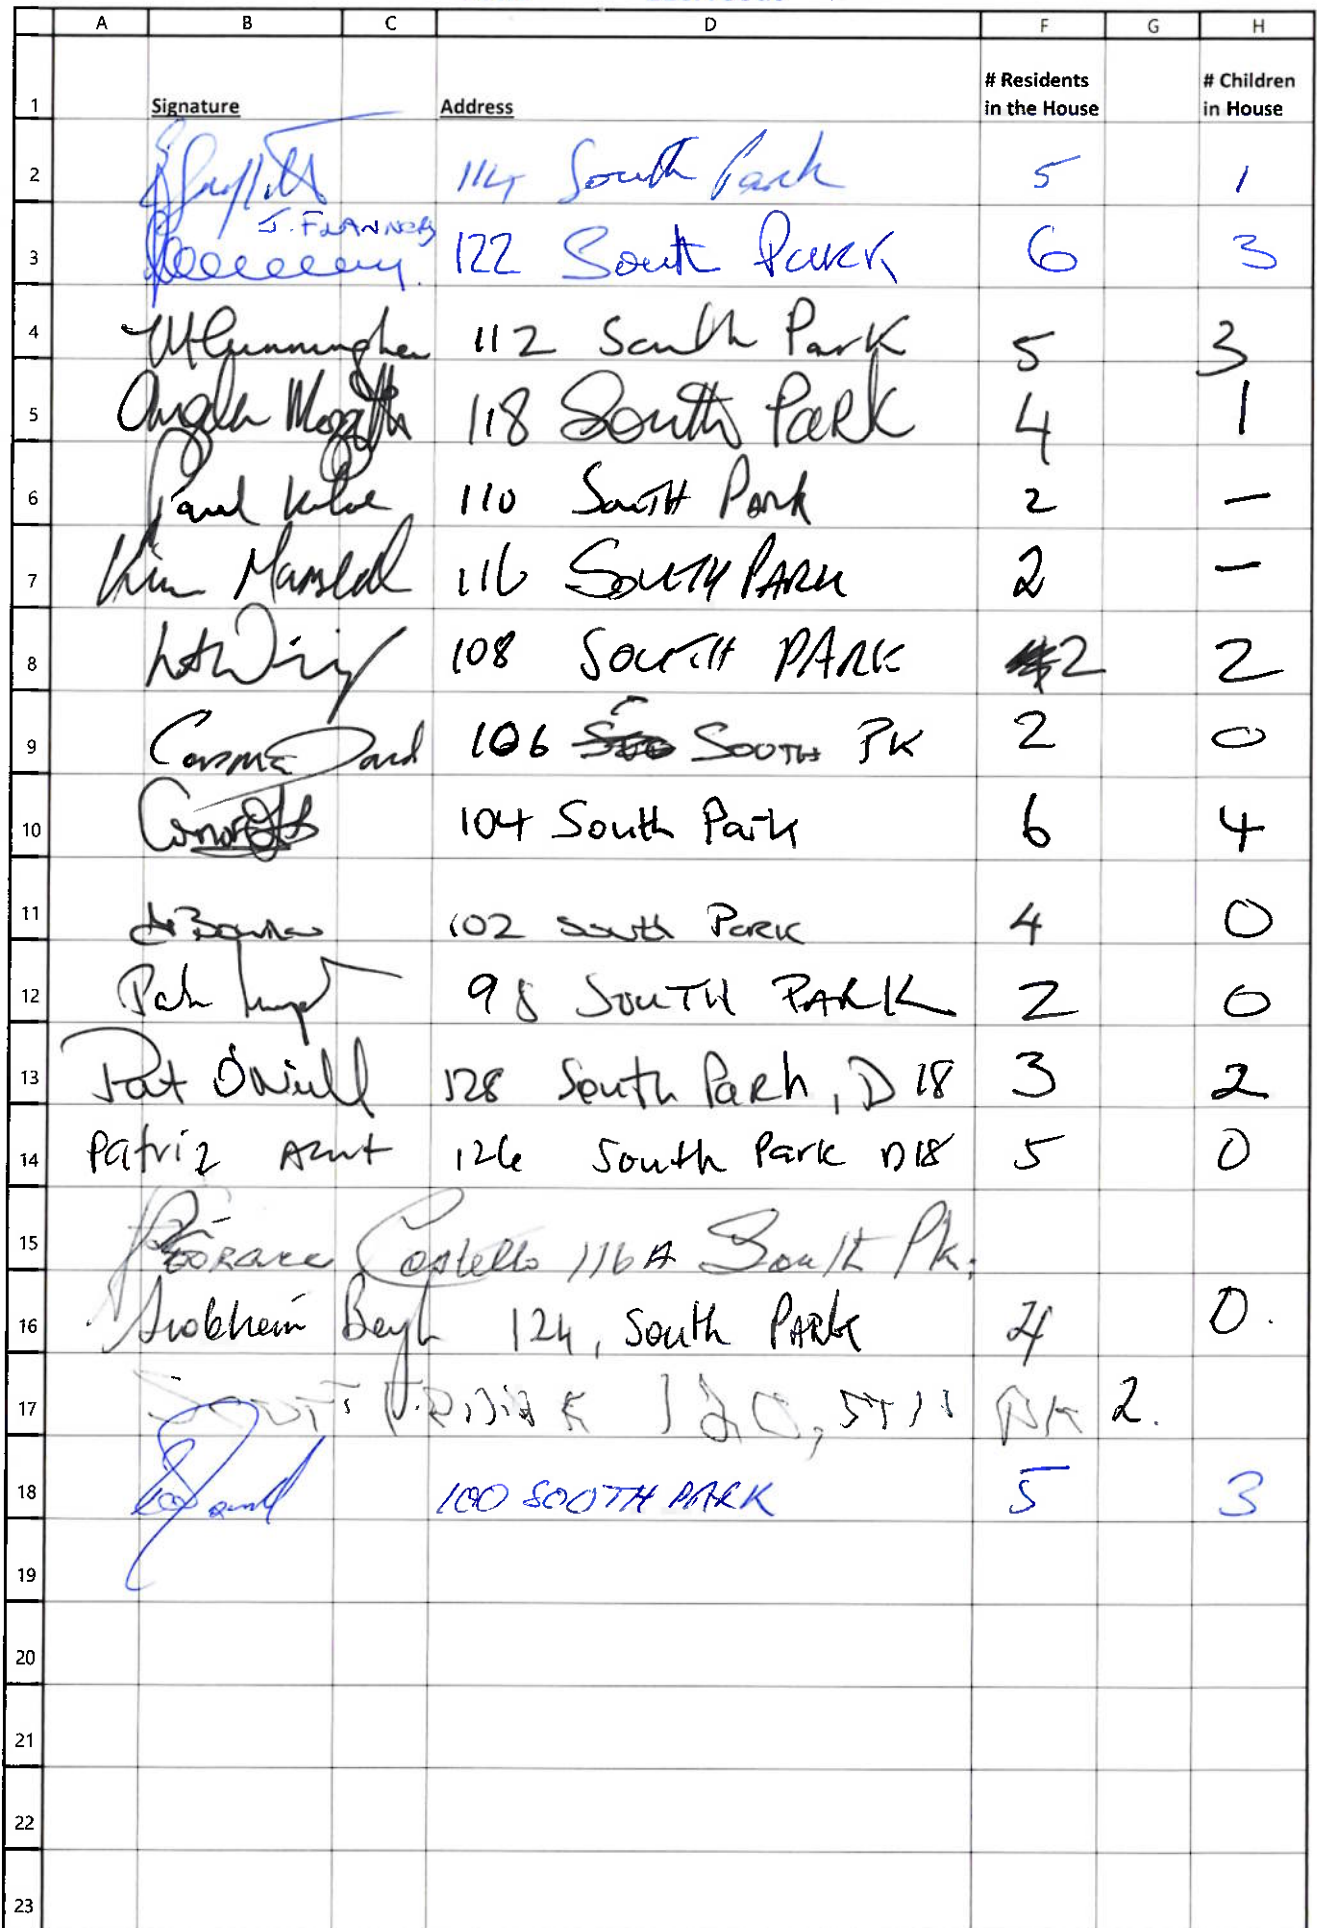 A B C D F G H
1 Signature Address # Residents in the House # Children in House
2 114 South Park 5 1
J. FLANNERY
3 122 South PARK 6 3
4 M Cunningham 112 South Park 5 3
5 Angela 118 South PaRK 4 1
6 Paul 110 South Park 2 —
7 Kim 116 SOUTH PARK 2 —
8 108 SOUTH PARK 2 2
9 106 SOUTH PK 2 0
10 Conor 104 South Park 6 4
11 102 South Park 4 0
12 98 SOUTH PARK 2 0
13 Pat O'Neill 128 South Park, D 18 3 2
14 126 South Park D18 5 0
15 Costello 116A South Pk.
16 124, South PARK 4 0.
17 120, STH PK 2.
18 100 SOUTH PARK 5 3
19
20
21
22
23